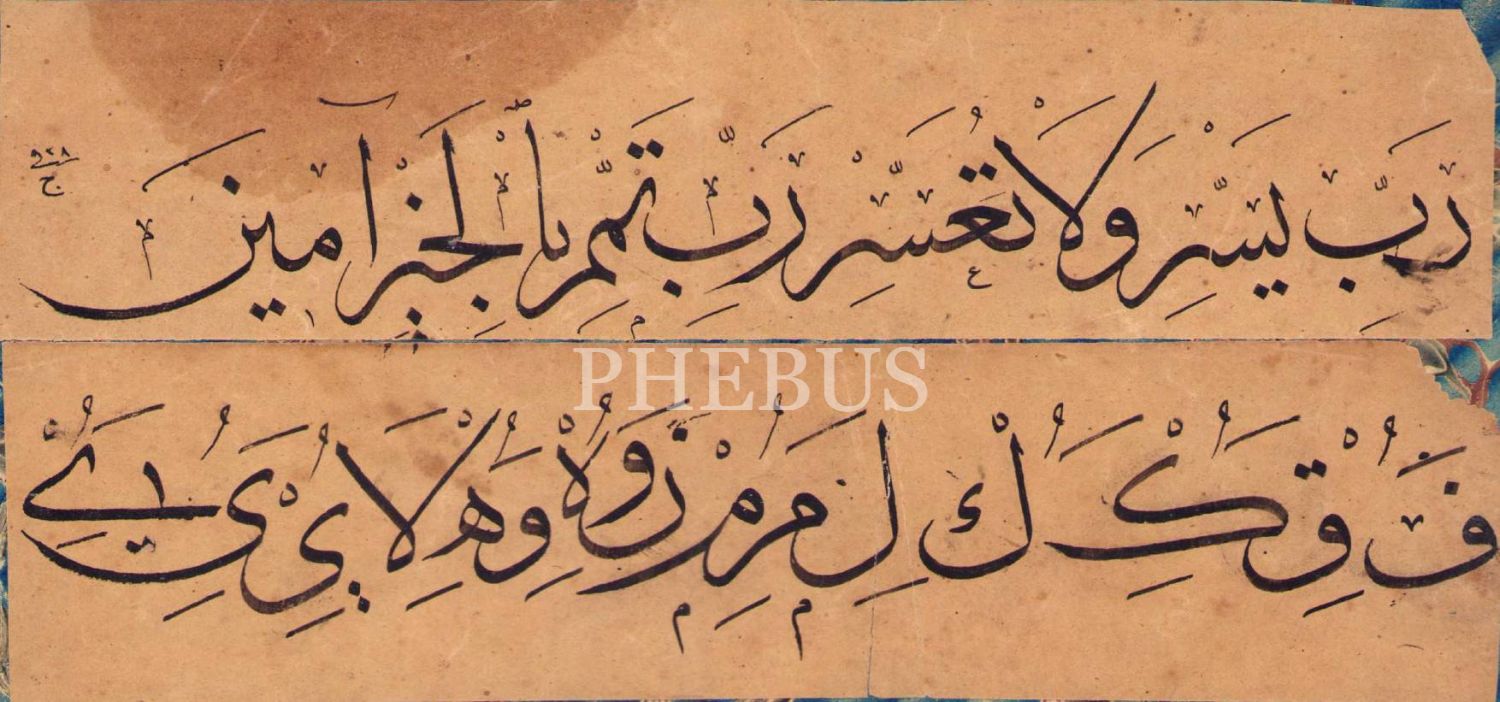 رَبِّ يَسِّرْ وَلَا تُعَسِّرْ رَبِّ تَمِّمْ بِالْخَيْرِ آمِينَ
PHEBUS
ف و ق ك ك ل م ر م ن و ه و ه لا ي ي ي